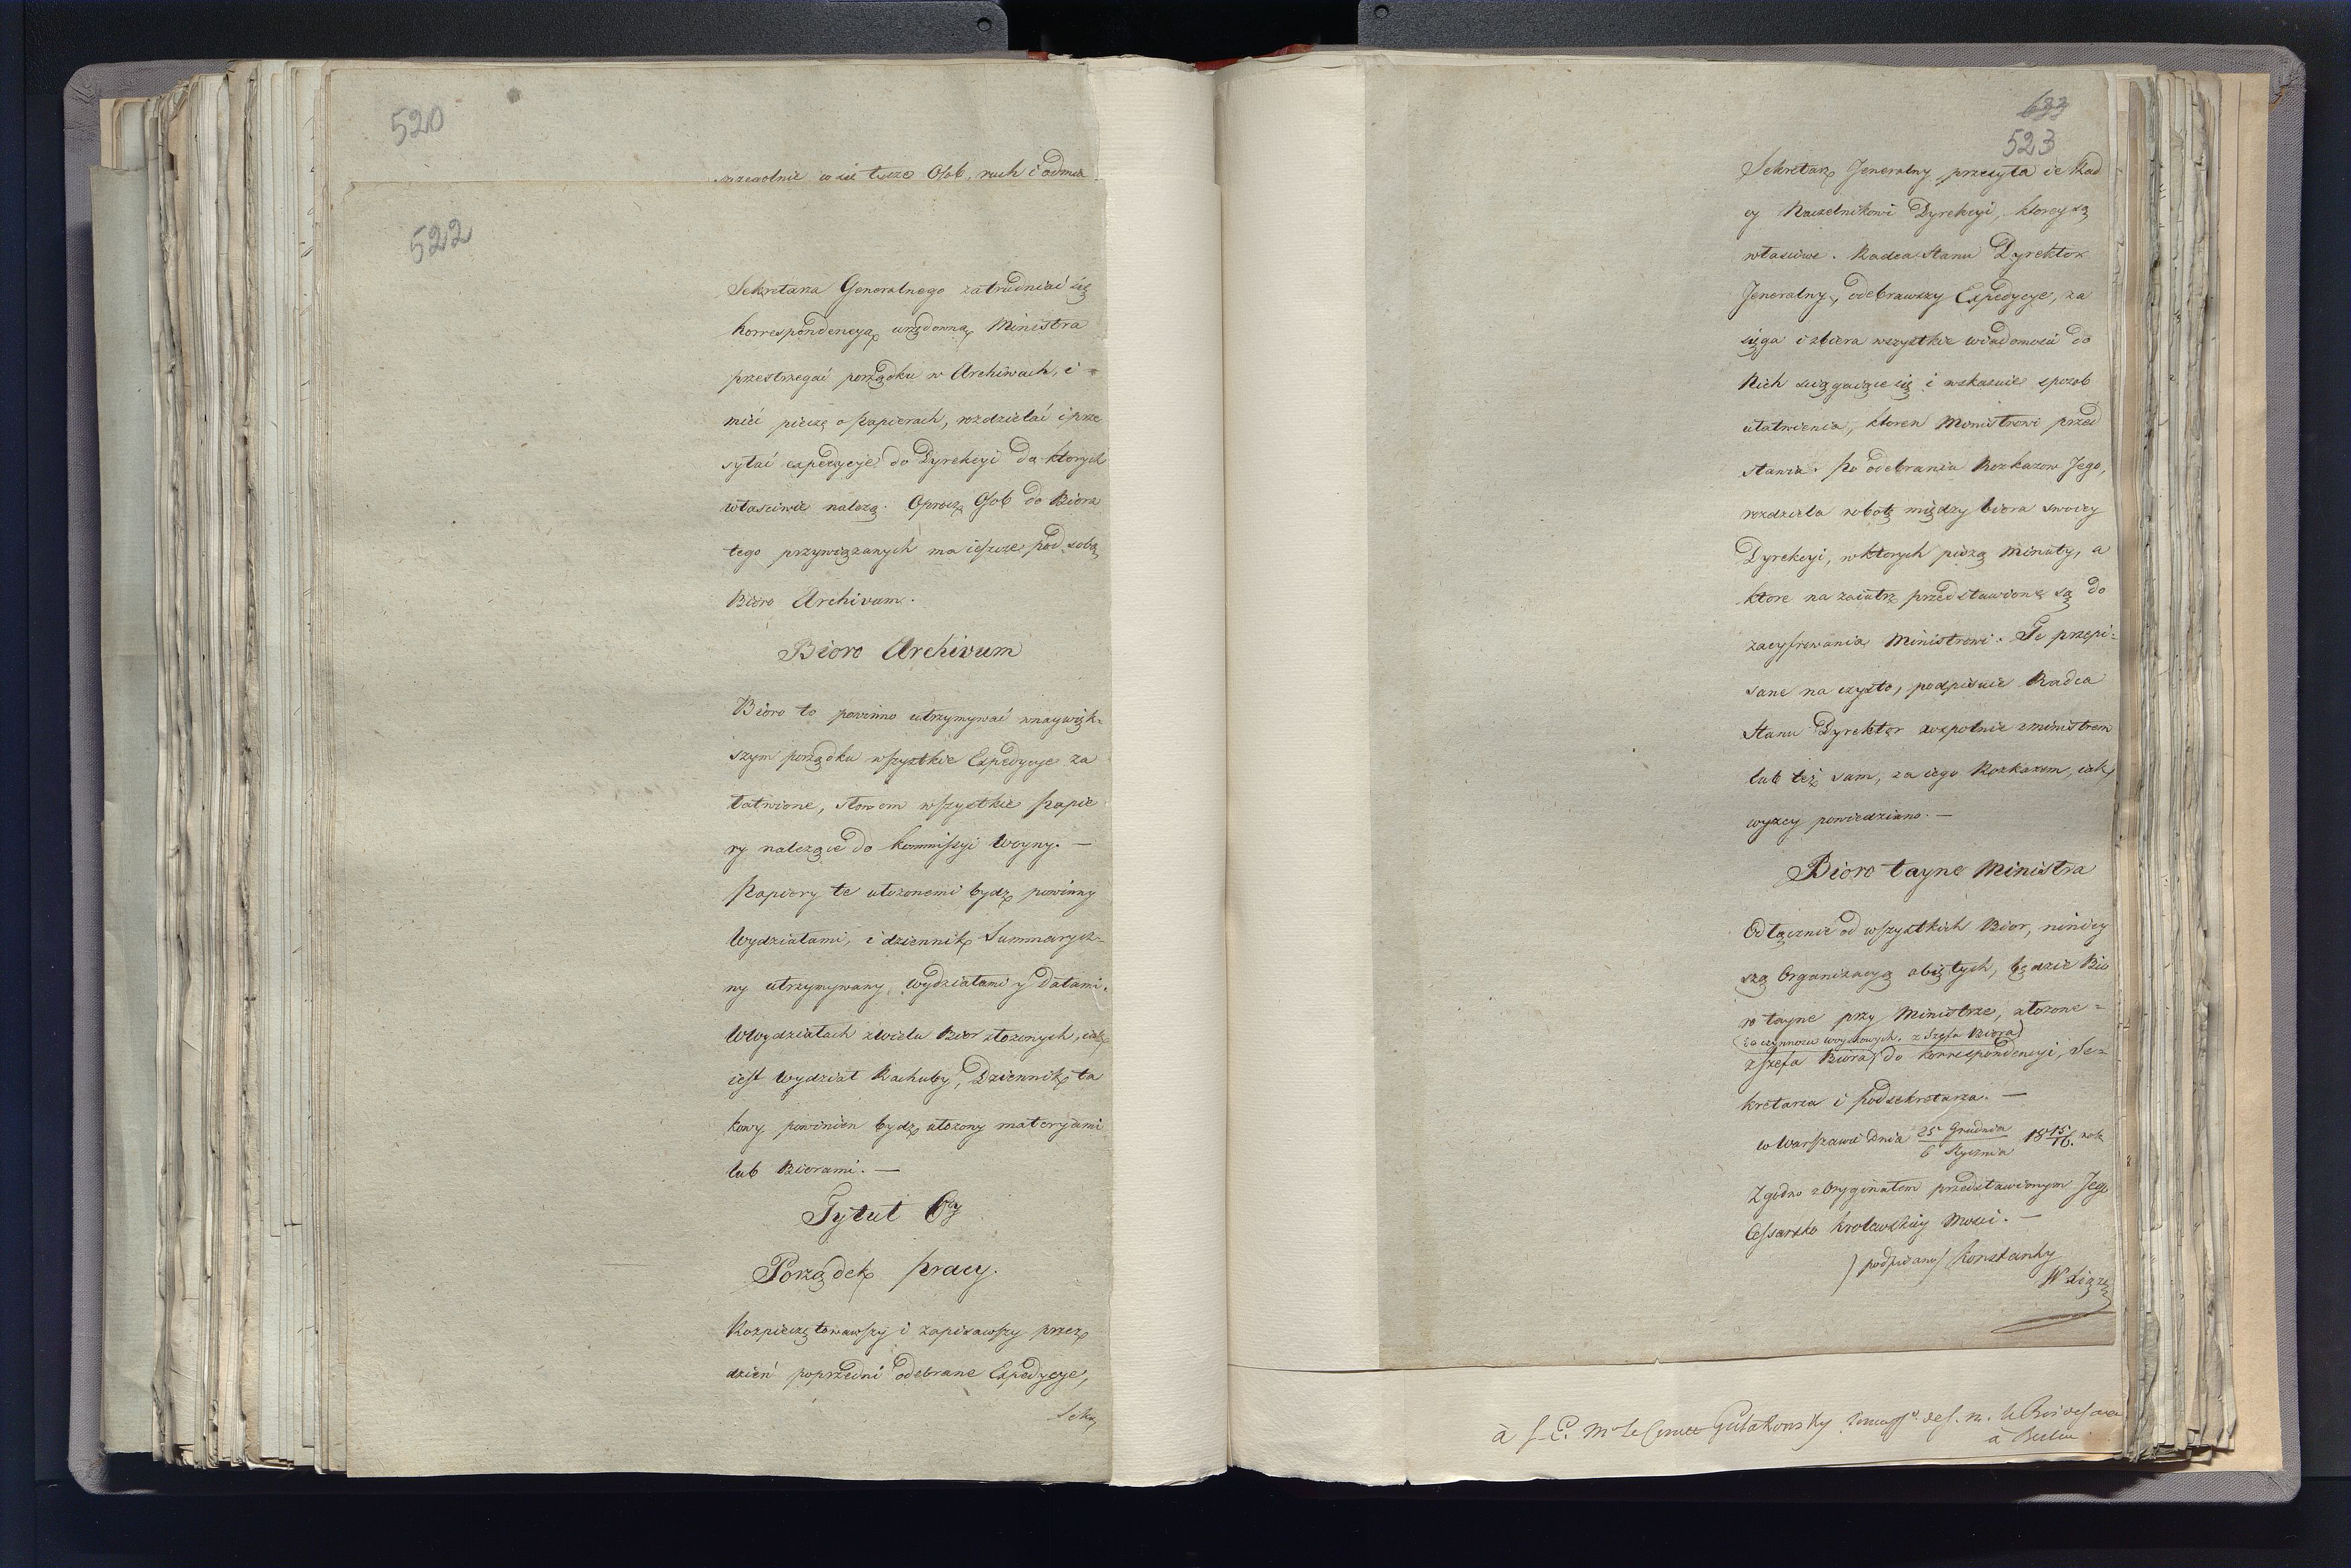 520
szczegolnie co się tycze Osob, ruch i odmia
522
Sekretarza Generalnego zatrudniać się
korrespondencyą urzędowną Ministra
przestrzegać porządku w Archiwach, i
mieć pieczę o Papierach, rozdzielać i prze
syłać expedycye do Dyrekcyi do ktorych
własciwie należą. Oprocz Osob do Biora
tego przywiązanych ma ieszcze pod sobą
Bioro Archivum.
Bioro Archivum
Bioro to powinno utrzymywać wnaywięk-
szym porządku wszystkie Expedycye za
łatwione, słowem wszystkie Papie
ry należące do Kommissyi Woyny. —
Papiery te ułożonemi bydź powinny
Wydziałami, i dziennik Summarycz=
ny utrzymywany, Wydziałami y Datami.
W Wydziałach z wielu Bior złożonych, iak
iest Wydział Rachuby, Dziennik ta
kowy powinien bydź ułożony materyami
lub Biorami. —
Tytuł 6ty
Porządek pracy.
Rozpieczętowawszy i zapisawszy przez
dzień poprzedni odebrane Expedycye,
Sekr
523
Sekretarz Jeneralny przesyła ie Rad
cy Naczelnikowi Dyrekcyi, ktorey są
własciwe. Radca Stanu Dyrektor
Jeneralny, odebrawszy Expedycye, za
sięga i zbiera wszystkie wiadomości do
Nich sciągaiące się i wskazuie sposob
ułatwienia, ktoren Ministrowi przed
stawia. Po odebraniu Rozkazow Jego,
rozdziela robotę między biora swoiey
Dyrekcyi, w ktorych piszą minuty, a
ktore na zaiutrz przedstawione są do
zacyfrowania Ministrowi. Te przepi=
sane na czysto, podpisuie Radca
Stanu Dyrektor wspolnie z ministrem
lub też sam, za iego Rozkazem, iak
wyżey powiedziano. —
Bioro tayne Ministra
Odłącznie od wszystkich Bior, niniey
szą Organizacyą obiętych, będzie Bio
ro tayne przy Ministrze, złożone =
do czynnosci woyskowych, z Szefa Biora
z Szefa Biora do korrespondencyi, Se=
kretarza i Podsekretarza. —
w Warszawie dnia 25 Grudnia / 6 Stycznia 18 15/16. roku
Zgodno z Oryginałem przedstawionym Jego
Cessarsko Krolewskiey Mosci. —
/podpisano/ Konstanty
W. Xiąże
à S. E. Mr le Comte Gutakowsky de S. M. le Roi de Saxe
à Berlin